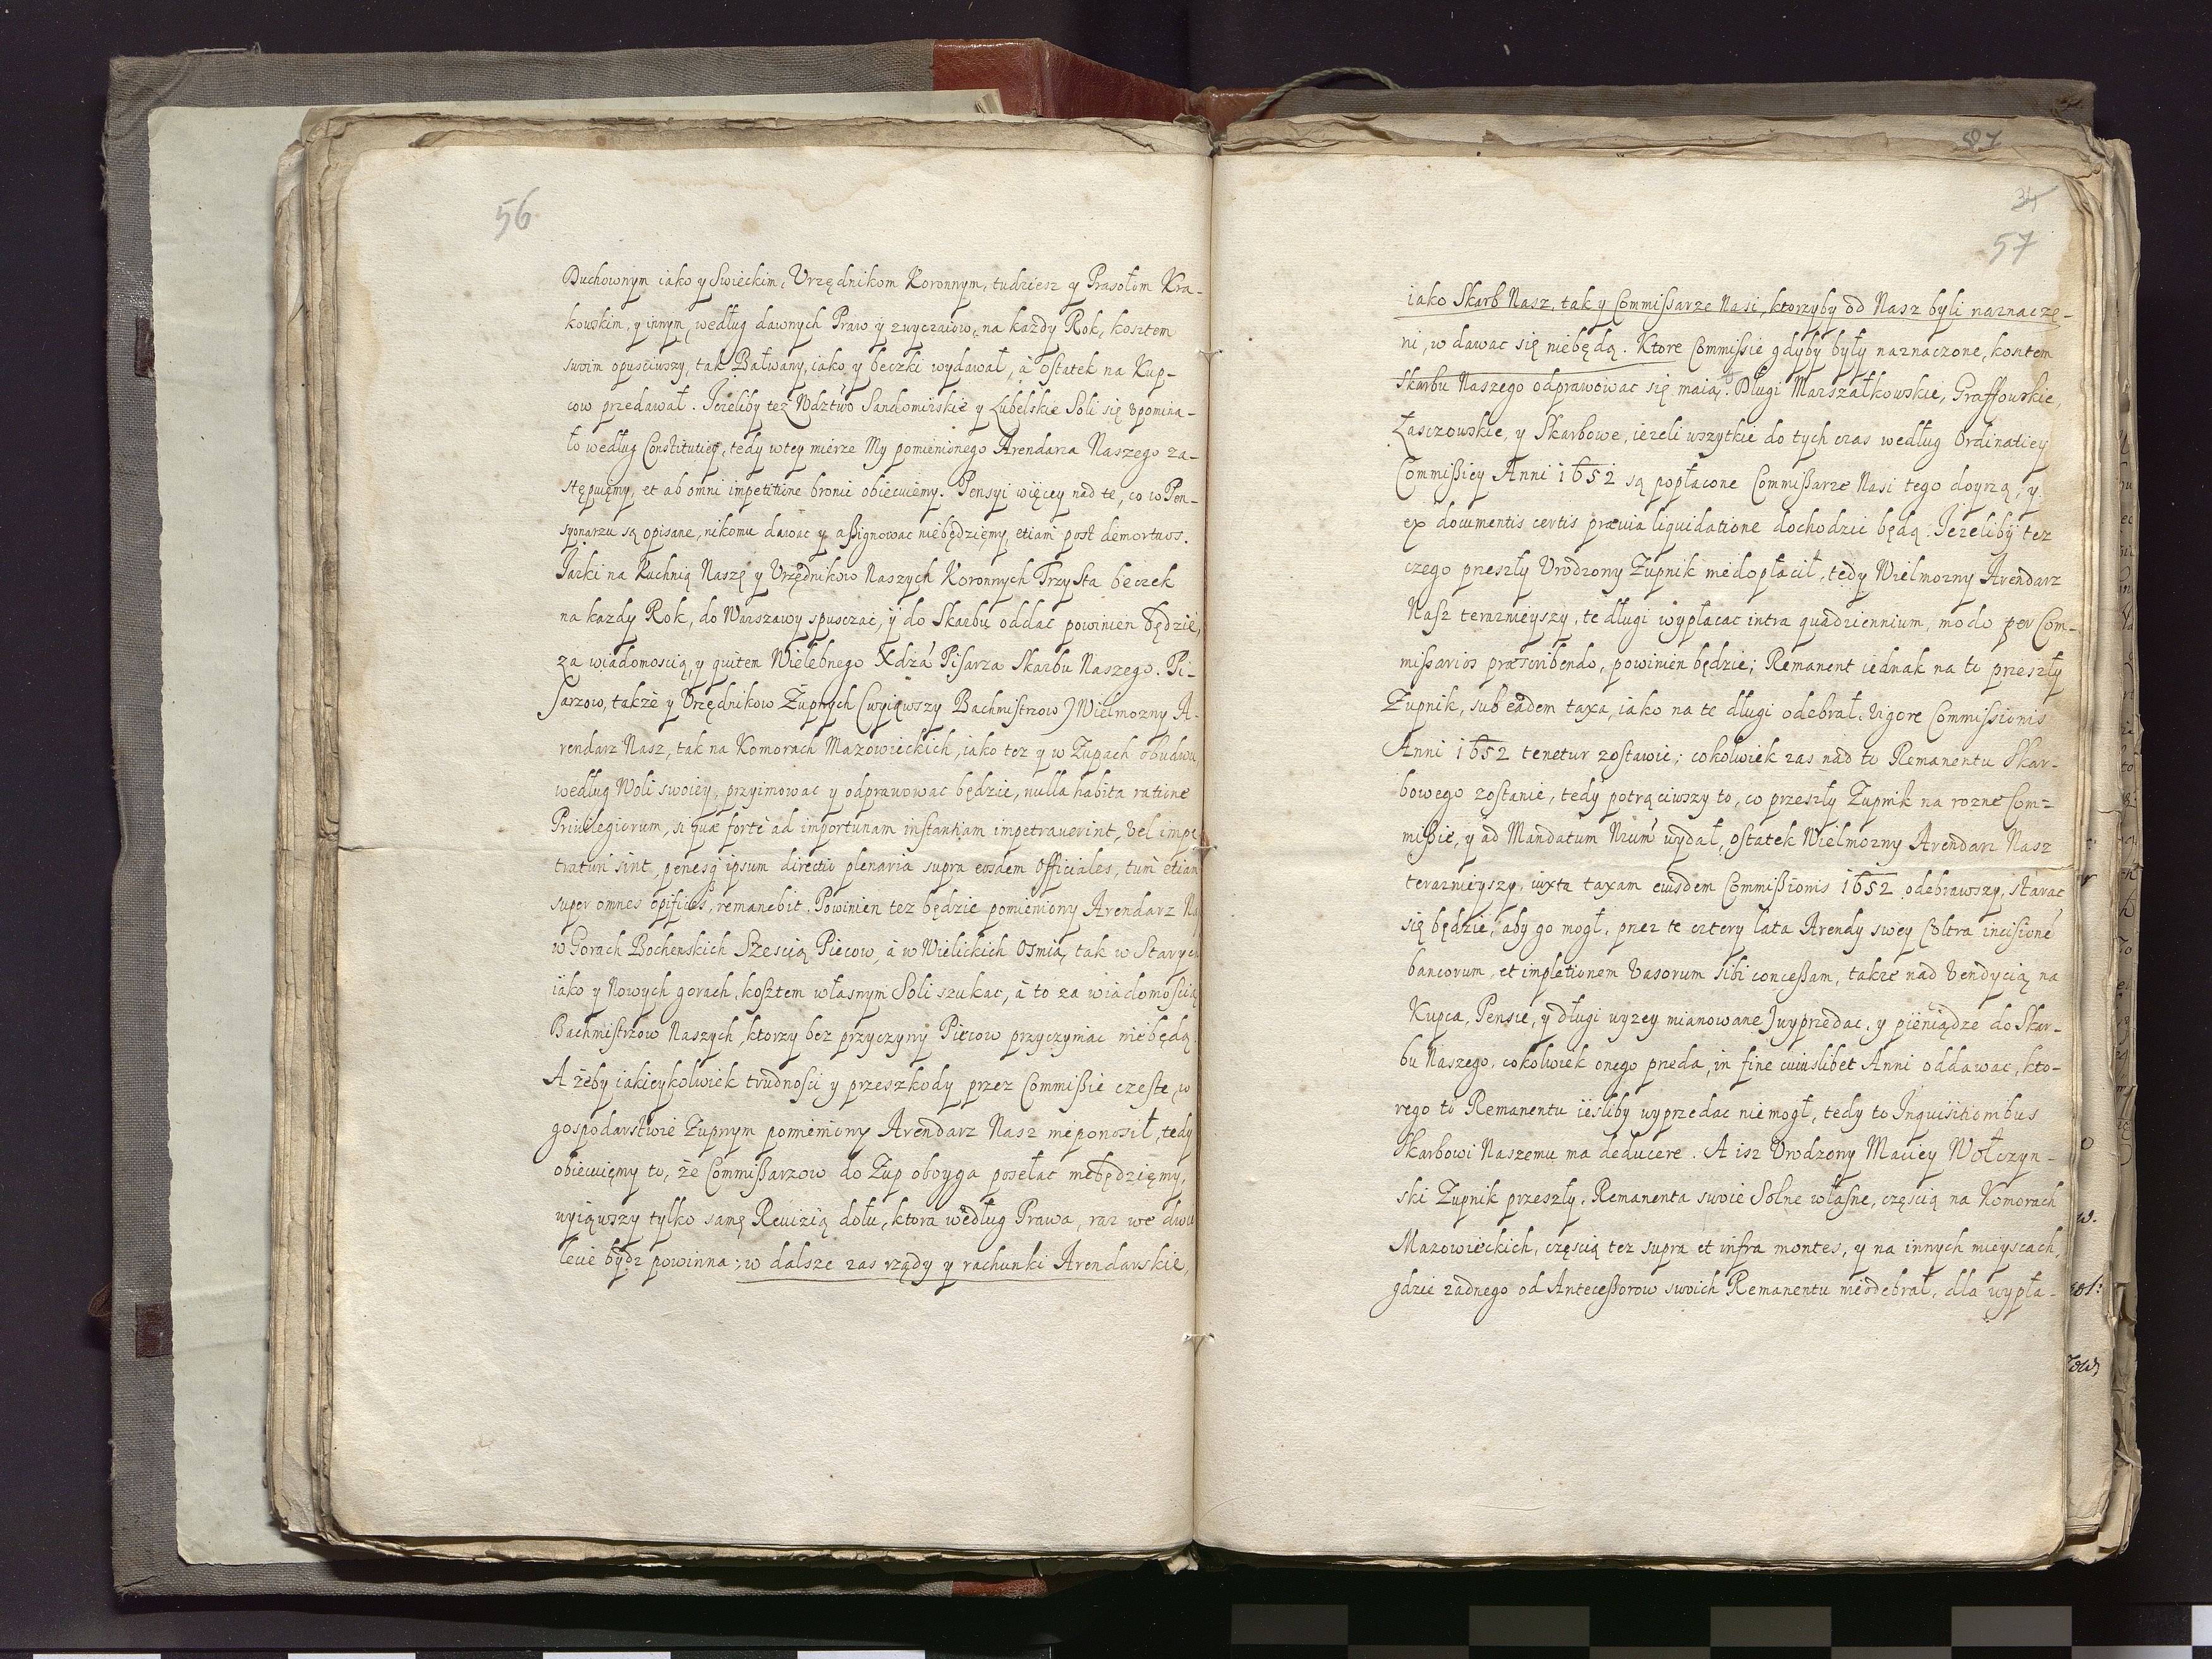 56
Duchownym iako y Swieckim, Vrzędnikom Koronnym, tudziesz y Prasołom Kra-
kowskim, y innym, według dawnych Praw y zwyczaiow, na kazdy Rok, kosztem
swoim opusciwszy, tak Bałwany, iako y beczki wydawał, à ostatek na Kup-
cow przedawał. Jezeliby tez Wdztwo Sandomirskie y Lubelskie Soli się vpomina-
ło według Constitutiey, tedy wtey mierze My pomienionego Arendarza Naszego za-
stępuięmy, et ab omni impetitione bronić obiecuiemy. Pensyi więcey nad te, co w Pen-
syonarzu są opisane, nikomu dawac y assignowac niebędzięmy, etiam post demortuos.
Jarki na Kuchnią Naszę y Vrzędnikow Naszych Koronnych Trzysta beczek
na kazdy Rok, do Warszawy spusczać, y do Skarbu oddać powinien będzie,
za wiadomoscią y quitem Wielebnego Xdzá Pisarza Skarbu Naszego. Pi-
sarzow, takze y Vrzędnikow Zupnych (wyiąwszy Bachmistrzow) Wielmozny A-
rendarz Nasz, tak na Komorach Mazowieckich, iako tez y w Zupach obudwu,
według Woli swoiey, przyimowac y odprawowac będzie, nulla habita ratione
Priuilegiorum, si quæ forte ad importunam instantiam impetrauerint, vel impe
traturi sint, penesq̃ ipsum directio plenaria supra eosdem Officiales, tum etiam
super omnes opifices, remanebit. Powinien tez będzie pomieniony Arendarz Na
w Gorach Bochenskich Szescią Piecow, à w Wielickich Osmią, tak w Starych
iako y Nowych gorach, kosztem własnym Soli szukac, à to za wiadomoscią
Bachmistrzow Naszych, ktorzy bez przyczyny Piecow przyczyniac niebędą.
A żeby iakieykolwiek trudnosci y przeszkody przez Commissie częste, w
gospodarstwie Zupnym pomieniony Arendarz Nasz nieponosił, tedy
obiecuięmy to, że Commissarzow do Zup oboyga posełac niebędzięmy,
wyiąwszy tylko samę Rewizią dołu, ktora według Prawa, raz we dwu
lecie bydz powinna; w dalsze zas rządy y rachunki Arendarskie,
87
34
57
iako Skarb Nasz, tak y Commissarze Nasi, ktorzyby od Nasz byli naznacze-
ni, w dawac się niebędą. Ktore Commissie gdyby były naznaczone, kosztem
Skarbu Naszego odprawowac się maią. Długi Marszałkowskie, Graffowskie,
Łasczowskie, y Skarbowe, iezeli wszytkie do tych czas według Ordinatiey
Commissiey Anni 1652 są popłacone Commissarze Nasi tego doyrzą, y
ex documentis certis prævia liquidatione dochodzic będą. Jezeliby tez
czego przeszły Vrodzony Zupnik niedopłacił, tędy Wielmozny Arendarz
Nasz terazniejszy, te długi wypłacac intra quadriennium, modo per Com-
missarios præscribendo, powinien będzie; Remanent iednak na to przeszły
Zupnik, sub eadem taxa, iako na te długi odebrał, Vigore Commissionis
Anni 1652 tenetur zostawic; cokolwiek zas nad to Remanentu Skar-
bowego zostanie, tedy potrąciwszy to, co przeszły Zupnik na rozne Com-
missie, y ad Mandatum Nrum wydał, ostatek Wielmozny Arendarz Nasz
terazniejszy, iuxta taxam eiusdem Commissionis 1652 odebrawszy, starac
się będzie, aby go mogł, przez te cztery lata Arendy swey (Vltra incisione
bancorum, et impletionem vasorum sibi concessam, takze nad Vendycią na
Kupca, Pensie, y długi wyzey mianowane) wyprzedac, y pieniądze do Skar-
bu Naszego, cokolwiek onego przeda, in fine cuiuslibet Anni oddawac, kto-
rego to Remanentu iesliby wyprzedac niemogł, tedy to Inquisitionibus
Skarbowi Naszemu ma deducere. A isz Vrodzony Maciey Wołczyn-
ski Zupnik przeszły, Remanenta swoie Solne własne, częścią na Komorach
Mazowieckich, częścią tez supra et infra montes, y na innych mieyscach,
gdzie zadnego od Antecessorow swoich Remanentu nieodebrał, dla wypła-